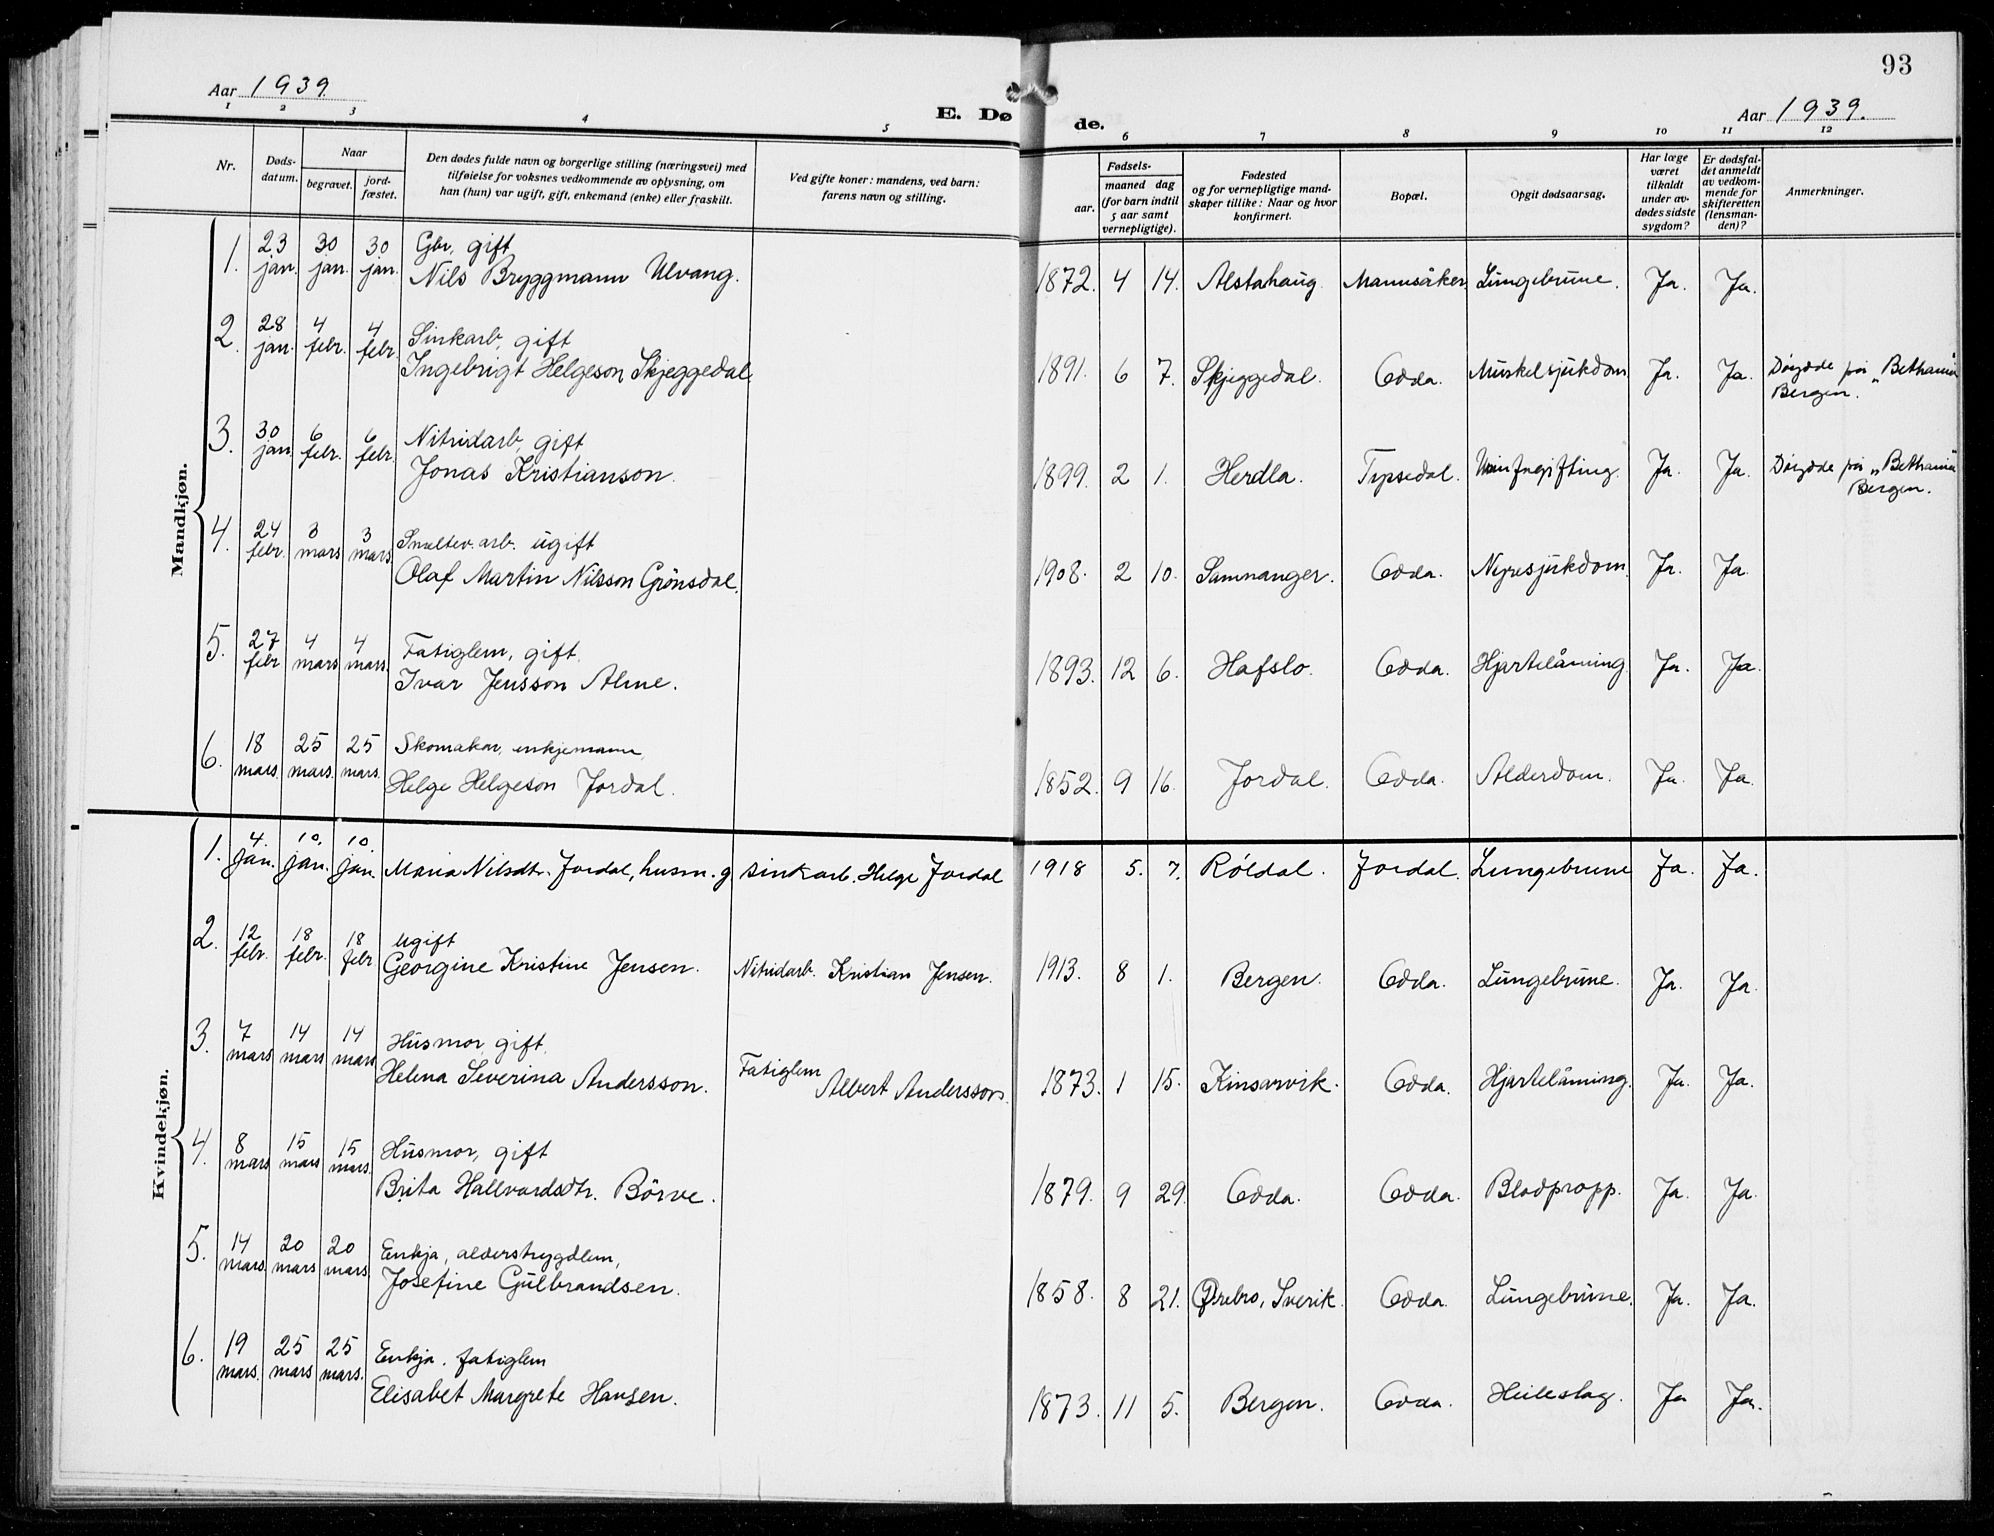 93
Aar 1939.
Aar 1939.
E. Dø
de.
1 2 3 4 5 6 7 8 9 10 11 12
Nr.
Døds-
datum.
Naar
begravet.
jord-
fæstet.
Den dødes fulde navn og borgerlige stilling (næringsvei) med
tilføielse for voksnes vedkommende av oplysning, om
han (hun) var ugift, gift, enkemand (enke) eller fraskilt.
Ved gifte koner: mandens, ved barn:
farens navn og stilling.
Fødsels-
aar.
maaned dag
(for barn indtil
5 aar samt
vernepligtige).
Fødested
og for vernepligtige mand-
skaper tillike: Naar og hvor
konfirmert.
Bopæl.
Opgit dødsaarsag.
Har læge
været
tilkaldt
under av-
dødes sidste
sygdom?
Er dødsfal-
det anmeldt
av vedkom-
mende for
skifteretten
(lensman-
den)?
Anmerkninger.
Mandkjøn.
1. 23 jan. 30 jan. 30 jan. Gbr, gift
Nils Bryggmann Ulvang. 1872. 4 14. Alstahaug. Mannsåker. Lungebrune. Ja. Ja.
2. 28 jan. 4 febr. 4 febr. Sinkarb, gift
Ingebrigt Helgeson Skjeggedal. 1891. 6 7. Skjeggedal. Odda. Muskelsjukdom. Ja. Ja. Döydde på „Bethania
Bergen.
3. 30 jan. 6 febr. 6 febr. Nitridarb, gift
Jonas Kristianson. 1899. 2 1. Herdla. Tyssedal. Ja. Ja. Döydde på „Bethania
Bergen.
4. 24 febr. 3 mars 3 mars. Smeltev.arb. ugift
Olaf Martin Nilsson Grönsdal. 1908. 2 10. Samnanger. Odda. Nyresjukdom. Ja. Ja.
5. 27 febr 4 mars 4 mars. Fatiglem, gift.
Ivar Jensson Alme. 1893. 12 6. Hafslo. Odda. Hjartelåming. Ja. Ja.
6. 18 mars. 25 mars. 25 mars. Skomakar, enkjemann,
Helge Helgeson Jordal. 1852. 9 16. Jordal. Odda. Alderdom. Ja. Ja.
Kvindekjøn.
1. 4. jan. 10. jan. 10. jan. Maria Nilsdtr. Jordal, husm. g sinkarb. Helge Jordal 1918 5. 7. Röldal. Jordal. Lungebrune Ja. Ja.
2. 12 febr. 18 febr. 18 febr ugift
Georgine Kristine Jensen. Nitridarb. Kristian Jensen. 1913. 8 1. Bergen. Odda. Lungebrune. Ja. Ja.
3. 7 mars 14 mars 14 mars Husmor, gift.
Helena Severina Andersson. Fatiglem Albert Andersson. 1873. 1 15. Kinsarvik. Odda. Hjartelåming. Ja. Ja.
4. 8 mars 15 mars 15 mars. Husmor, gift
Brita Hallvardsdtr. Börve. 1879. 9 29. Odda. Odda. Blodpropp. Ja. Ja.
5. 14 mars. 20 mars 20 mars. Enkja, alderstrygdlem,
Josefine Gulbrandsen. 1858. 8 21. Ørebro, Sverik. Odda. Lungebrune. Ja. Ja.
6. 19 mars. 25 mars 25 mars. Enkja. fatiglem
Elisabet Margrete Hansen. 1873. 11 5. Bergen. Odda. Heileslag. Ja Ja.